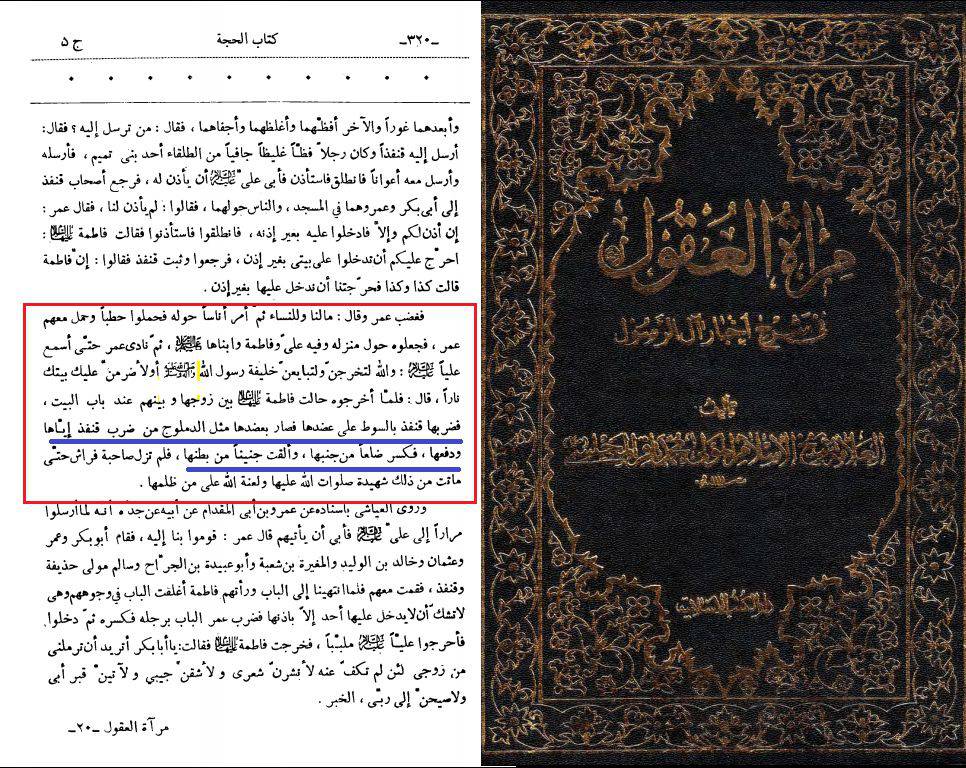 ج ٥
كتاب الحجة
ـ٣٢٠ـ
وأبعدهما غوراً والآخر أفظّهما وأغلظهما وأجفاهما ، فقال : من ترسل إليه ؟ فقال:
أرسل إليه قنفذاً وكان رجلاً فظّاً غليظاً جافياً من الطلقاء أحد بنى تميم ، فأرسله
وأرسل معه أعواناً فانطلق فاستأذن فأبى علىّ عليه السلام أن يأذن له ، فرجع أصحاب قنفذ
إلى أبى بكر وعمر وهما في المسجد ، والناس حولهما ، فقالوا : لم يأذن لنا ، فقال عمر :
إن أذن لكم وإلاّ فادخلوا عليه بغير إذنه ، فانطلقوا فاستأذنوا فقالت فاطمة عليها السلام :
احرّج عليكم أن تدخلوا على بيتى بغير إذن ، فرجعوا وثبت قنفذ فقالوا : إنّ فاطمة
قالت كذا وكذا فحرّجتنا أن ندخل عليها بغير إذن .
فغضب عمر وقال : مالنا وللنساء ثمّ أمر أناساً حوله فحملوا حطباً وحمل معهم
عمر ، فجعلوه حول منزله وفيه علىّ وفاطمة وابناها عليهم السلام ، ثمّ نادى عمر حتّى أسمع
علياً عليه السلام : والله لتخرجنّ ولتبايعنّ خليفة رسول الله صلى الله عليه وآله أولأضرمنّ عليك بيتك
ناراً ، قال : فلمّا أخرجوه حالت فاطمة عليها السلام بين زوجها وبينهم عند باب البيت ،
فضربها قنفذ بالسوط على عضدها فصار بعضدها مثل الدملوج من ضرب قنفذ إيّاها
ودفعها ، فكسر ضلعاً من جنبها ، وألقت جنيناً من بطنها ، فلم تزل صاحبة فراش حتّى
ماتت من ذلك شهيدة صلوات الله عليها ولعنة الله على من ظلمها .
وروى العياشي باسناده عن عمرو بن أبى المقدام عن أبيه عن جده أنه لما أرسلوا
مراراً إلى علىّ عليه السلام فأبى أن يأتيهم قال عمر : قوموا بنا إليه ، فقام أبوبكر وعمر
وعثمان وخالد بن الوليد والمغيرة بن شعبة وأبو عبيدة بن الجرّاح وسالم مولى حذيفة
وقنفذ ، فقمت معهم فلما انتهينا إلى الباب ورأتهم فاطمة أغلقت الباب في وجوههم وهى
لاتشكّ أن لايدخل عليها أحد إلاّ باذنها فضرب عمر الباب برجله فكسره ثمّ دخلوا
فأخرجوا عليّاً عليه السلام ملبّباً ، فخرجت فاطمة عليها السلام فقالت: يا أبابكر أتريد أن ترملنى
من زوجى لئن لم تكفّ عنه لأنشرنّ شعرى ولأشقنّ جيبي ولآتينّ قبر أبى
ولاصيحنّ إلى ربّى ، الخبر .
مرآة العقول ـ٢٠ـ
مرآة العقول
في شرح أخبار آل الرسول
تأليف
العلامة شيخ الإسلام المولى محمد باقر المجلسي
دار الكتب الإسلامية